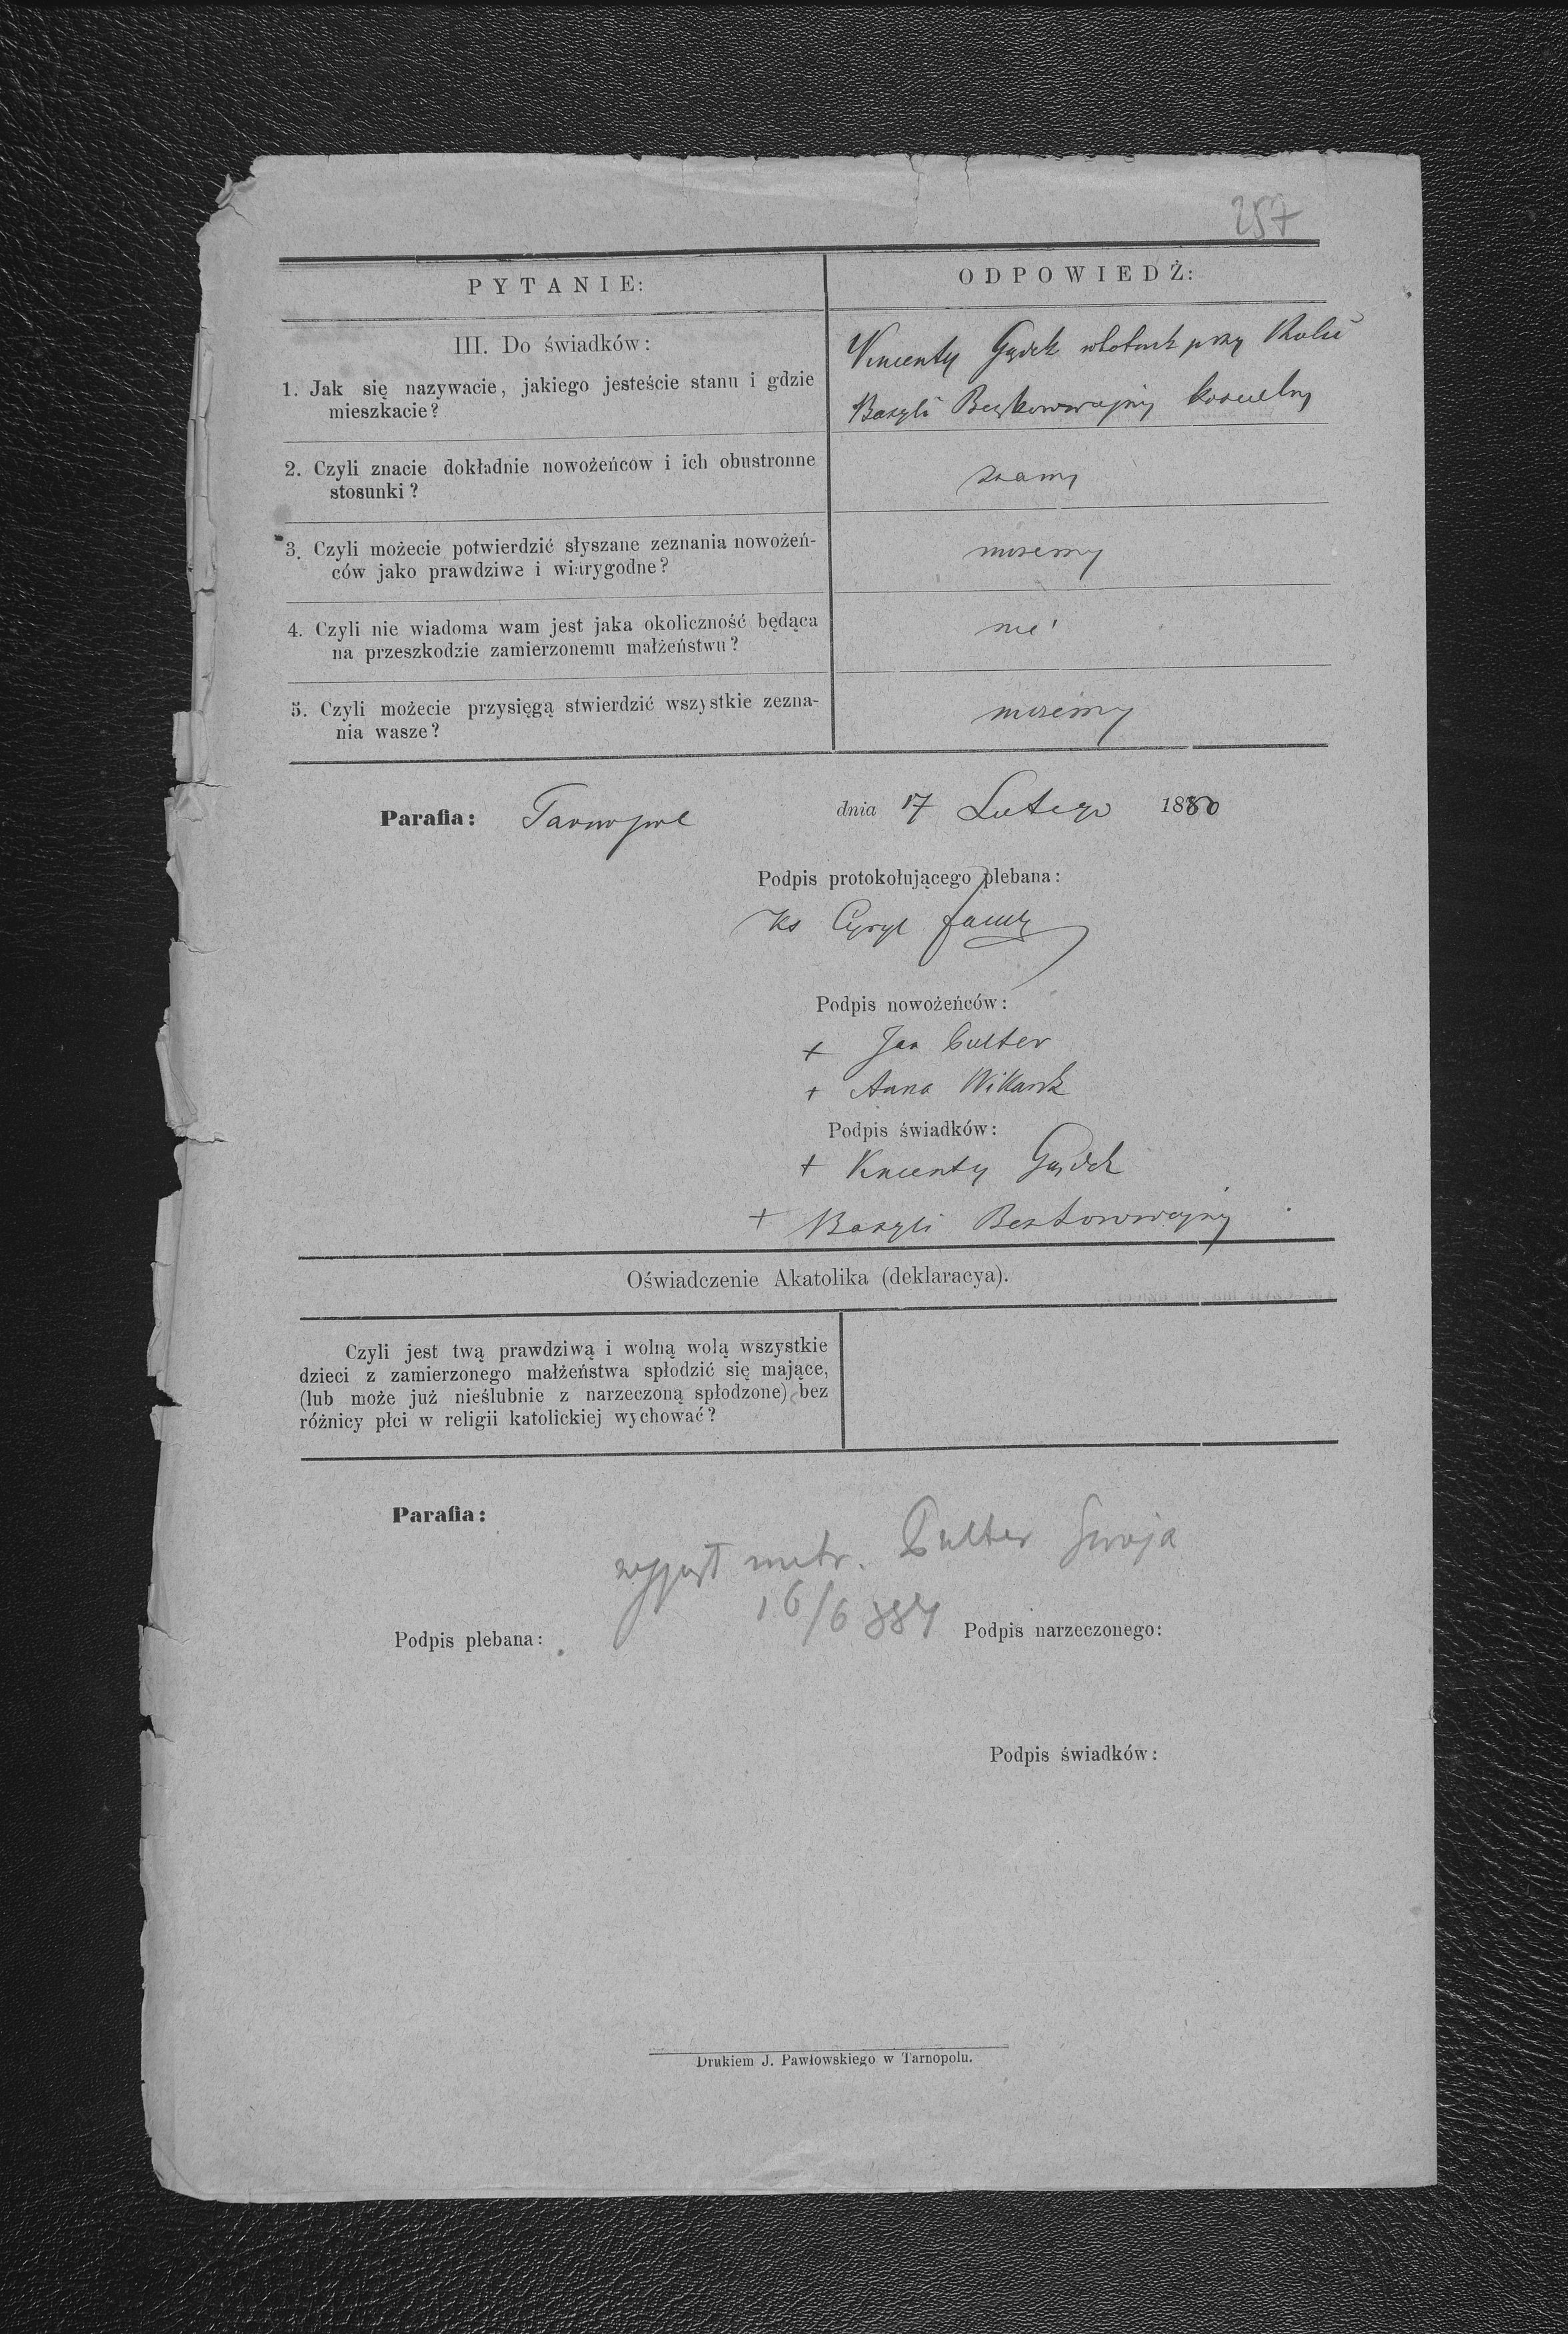 257
PYTANIE:
ODPOWIEDŹ:
III. Do świadków:
1. Jak się nazywacie, jakiego jesteście stanu i gdzie
mieszkacie?
Wincenty Gądek przy Kolei
Bazyli
2. Czyli znacie dokładnie nowożeńców i ich obustronne
stosunki?
znamy
3. Czyli możecie potwierdzić słyszane zeznania nowożeń-
ców jako prawdziwe i wiarygodne?
możemy
4. Czyli nie wiadoma wam jest jaka okoliczność będąca
na przeszkodzie zamierzonemu małżeństwu?
nie
5. Czyli możecie przysięgą stwierdzić wszystkie zezna-
nia wasze?
możemy
Parafia: Tarnopol
dnia 17 Lutego 1880
Podpis protokołującego plebana:
Ks Cyryl
Podpis nowożeńców:
+ Jan Pulter
+ Anna
Podpis świadków:
+ Wincenty Gądek
+ Bazyli
Oświadczenie Akatolika (deklaracya).
Czyli jest twą prawdziwą i wolną wolą wszystkie
dzieci z zamierzonego małżeństwa spłodzić się mające,
(lub może już nieślubnie z narzeczoną spłodzone) bez
różnicy płci w religii katolickiej wychować?
Parafia:
metr. Pulter
16/6 887
Podpis plebana:
Podpis narzeczonego:
Podpis świadków:
Drukiem J. Pawłowskiego w Tarnopolu.